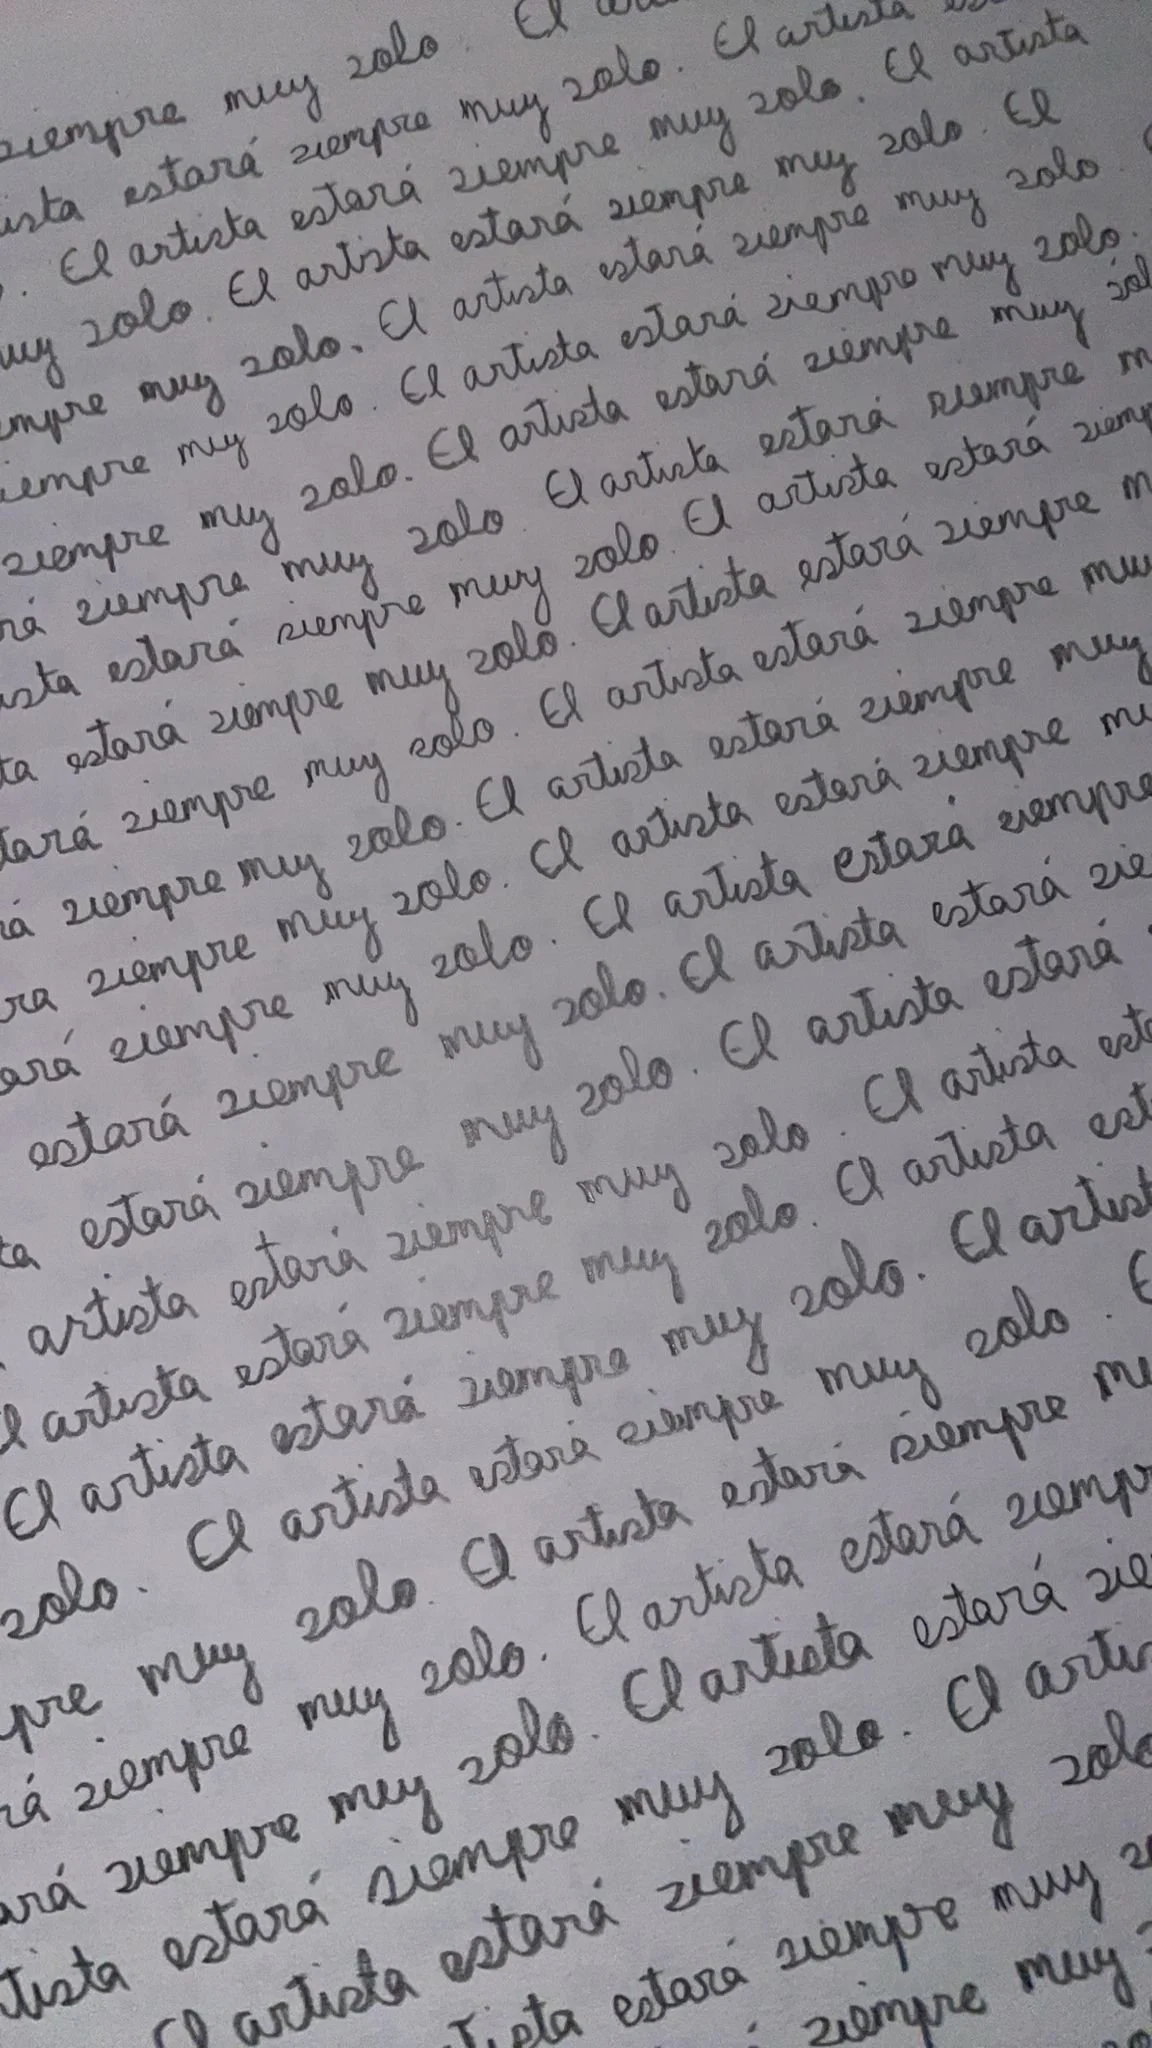 siempre muy solo. El
ista estará siempre muy solo. El artista
. El artista estará siempre muy solo. El artista
muy solo. El artista estará siempre muy solo. El
empre muy solo. El artista estará siempre muy solo.
iempre muy solo. El artista estará siempre muy solo.
siempre muy solo. El artista estará siempre muy sol
rá siempre muy solo. El artista estará siempre m
ista estará siempre muy solo. El artista estará siemp
ta estará siempre muy solo. El artista estará siempre m
tará siempre muy solo. El artista estará siempre mu
rá siempre muy solo. El artista estará siempre muy
ra siempre muy solo. El artista estará siempre mu
ará siempre muy solo. El artista estará siempre
estará siempre muy solo. El artista estará sie
ta estará siempre muy solo. El artista estará
artista estará siempre muy solo. El artista est
l artista estará siempre muy solo. El artista est
El artista estará siempre muy solo. El artist
solo. El artista estará siempre muy solo. E
pre muy solo. El artista estará siempre mu
rá siempre muy solo. El artista estará siempr
ará siempre muy solo. El artista estará sie
tista estará siempre muy solo. El artis
El artista estará siempre muy solo
tista estará siempre muy s
siempre muy